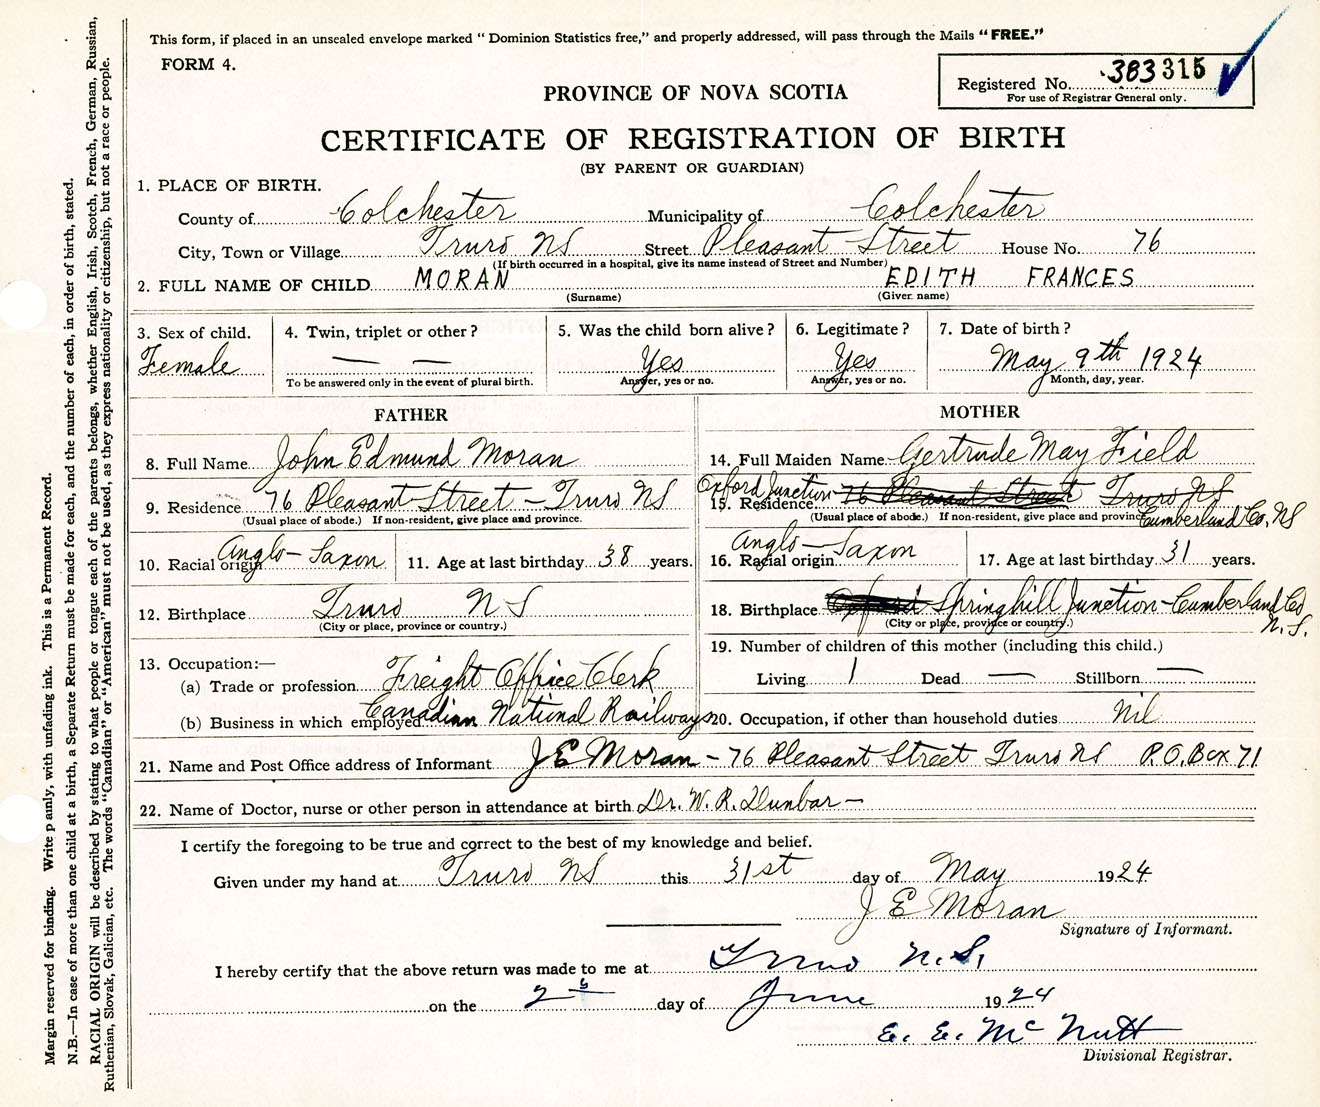 This form, if placed in an unsealed envelope marked “ Dominion Statistics free,” and properly addressed, will pass through the Mails “ FREE.”
FORM 4.
Registered No. 383315
For use of Registrar General only.
PROVINCE OF NOVA SCOTIA
CERTIFICATE OF REGISTRATION OF BIRTH
(BY PARENT OR GUARDIAN)
1. PLACE OF BIRTH.
County of Colchester Municipality of Colchester
City, Town or Village Truro NS Street Pleasant Street House No. 76
(If birth occurred in a hospital, give its name instead of Street and Number)
2. FULL NAME OF CHILD MORAN EDITH FRANCES
(Surname) (Given name)
3. Sex of child. 4. Twin, triplet or other? 5. Was the child born alive? 6. Legitimate? 7. Date of birth?
Female — — Yes Yes May 9th 1924
To be answered only in the event of plural birth. Answer, yes or no. Answer, yes or no. Month, day, year.
FATHER
8. Full Name John Edmund Moran
9. Residence 76 Pleasant Street - Truro NS
(Usual place of abode.) If non-resident, give place and province.
10. Racial origin Anglo-Saxon 11. Age at last birthday 38 years.
12. Birthplace Truro NS
(City or place, province or country.)
13. Occupation:—
(a) Trade or profession Freight Office Clerk
(b) Business in which employed Canadian National Railways
MOTHER
14. Full Maiden Name Gertrude May Field
15. Residence Oxford Junction 76 Pleasant Street Truro NS
(Usual place of abode.) If non-resident, give place and province. Cumberland Co. NS
16. Racial origin Anglo-Saxon 17. Age at last birthday 31 years.
18. Birthplace Oxford Springhill Junction - Cumberland Co
N.S.
(City or place, province or country.)
19. Number of children of this mother (including this child.)
Living 1 Dead — Stillborn —
20. Occupation, if other than household duties Nil
21. Name and Post Office address of Informant J E Moran - 76 Pleasant Street Truro NS P.O. Box 71
22. Name of Doctor, nurse or other person in attendance at birth Dr. W. R. Dunbar -
I certify the foregoing to be true and correct to the best of my knowledge and belief.
Given under my hand at Truro NS this 31st day of May 1924
J E Moran
Signature of Informant.
I hereby certify that the above return was made to me at Truro N.S.
on the 2 day of June 1924
E. E. McNutt
Divisional Registrar.
Margin reserved for binding. Write p ainly, with unfading ink. This is a Permanent Record.
N.B.—In case of more than one child at a birth, a Separate Return must be made for each, and the number of each, in order of birth, stated.
RACIAL ORIGIN will be described by stating to what people or tongue each of the parents belongs, whether English, Irish, Scotch, French, German, Russian,
Ruthenian, Slovak, Galician, etc. The words “Canadian” or “American” must not be used, as they express nationality or citizenship, but not a race or people.